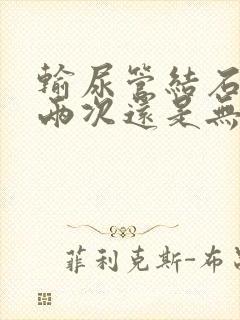 輸尿管結石
兩次還是無
菲利克斯-布